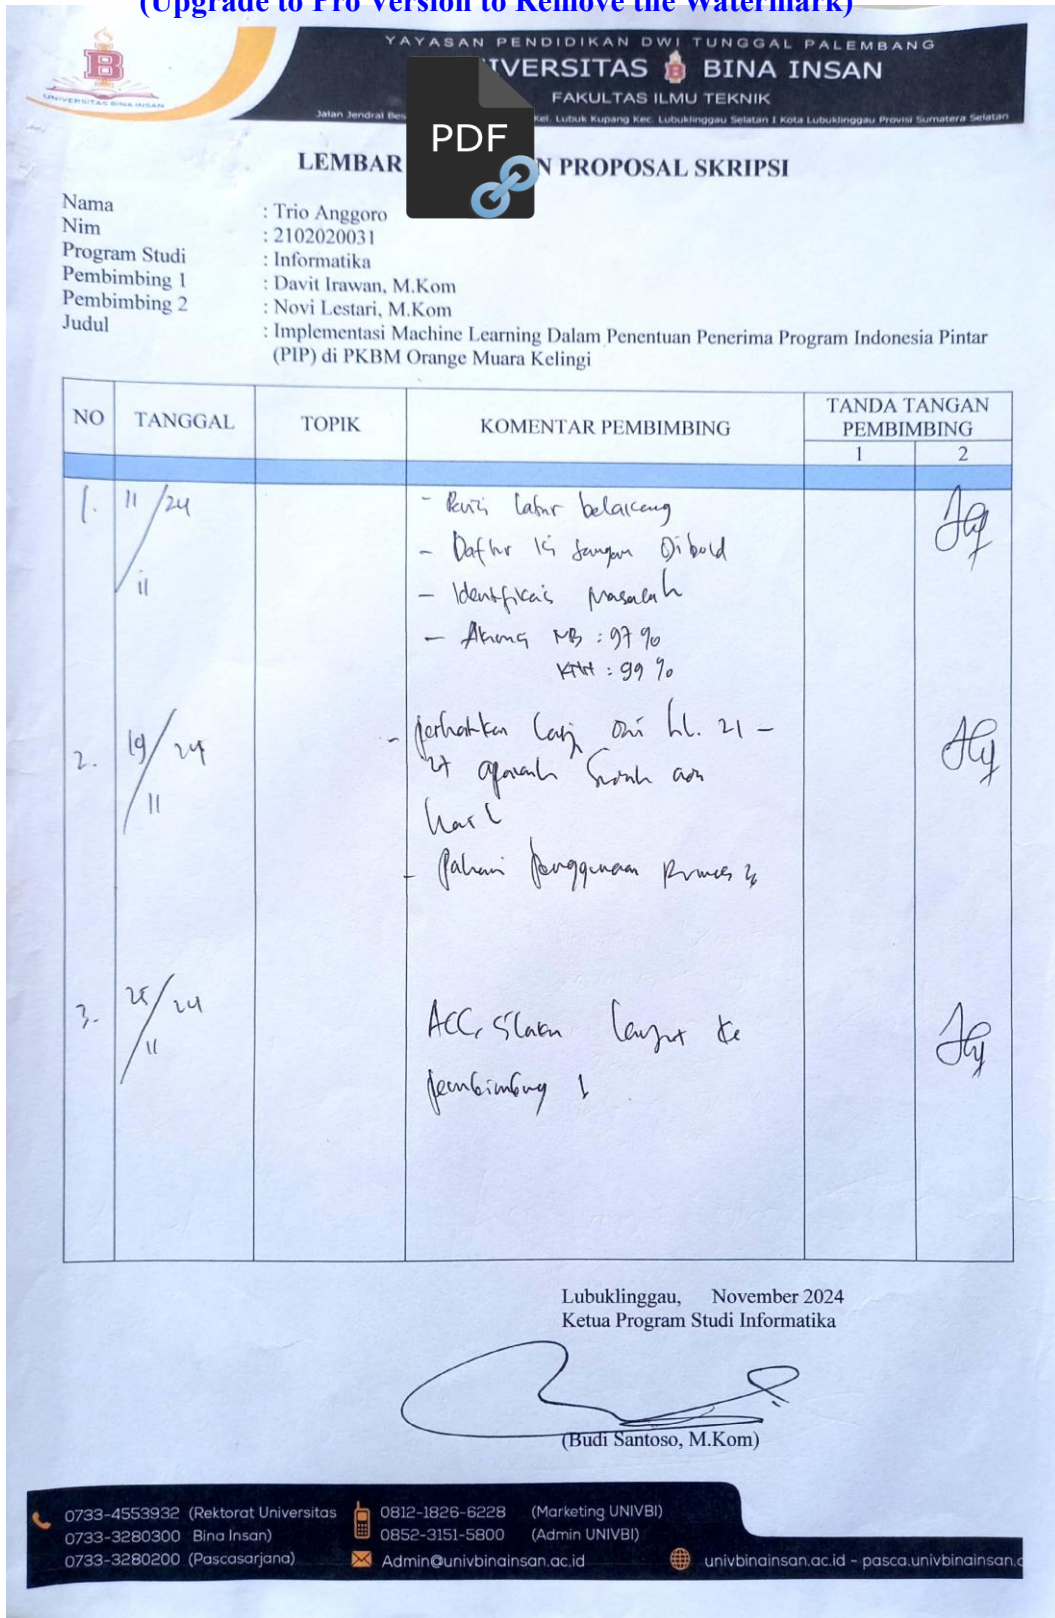 (Upgrade to Pro Version to Remove the Watermark)
YAYASAN PENDIDIKAN DWI TUNGGAL PALEMBANG
IVERSITAS BINA INSAN
FAKULTAS ILMU TEKNIK
UNIVERSITAS BINA INSAN
Jalan Jendral Bes Kel. Lubuk Kupang Kec. Lubuklinggau Selatan I Kota Lubuklinggau Provisi Sumatera Selatan
PDF
LEMBAR N PROPOSAL SKRIPSI
Nama : Trio Anggoro
Nim : 2102020031
Program Studi : Informatika
Pembimbing 1 : Davit Irawan, M.Kom
Pembimbing 2 : Novi Lestari, M.Kom
Judul : Implementasi Machine Learning Dalam Penentuan Penerima Program Indonesia Pintar
(PIP) di PKBM Orange Muara Kelingi
NO TANGGAL TOPIK KOMENTAR PEMBIMBING TANDA TANGAN PEMBIMBING
1 2
1. 11/11 24 - Revisi latar belakang
- Daftar isi jangan Dibold
- Identifikasi Masalah
- NB : 97 %
: 99 %
2. 19/11 24 - perhatikan lagi hl. 21 -
27 apakah sudah ada
hasil
- Pahami penggunaan
3. 11 24 ACC, silakan lanjut ke
pembimbing 1
Lubuklinggau, November 2024
Ketua Program Studi Informatika
(Budi Santoso, M.Kom)
0733-4553932 (Rektorat Universitas 0812-1826-6228 (Marketing UNIVBI)
0733-3280300 Bina Insan) 0852-3151-5800 (Admin UNIVBI)
0733-3280200 (Pascasarjana) Admin@univbinainsan.ac.id univbinainsan.ac.id - pasca.univbinainsan.